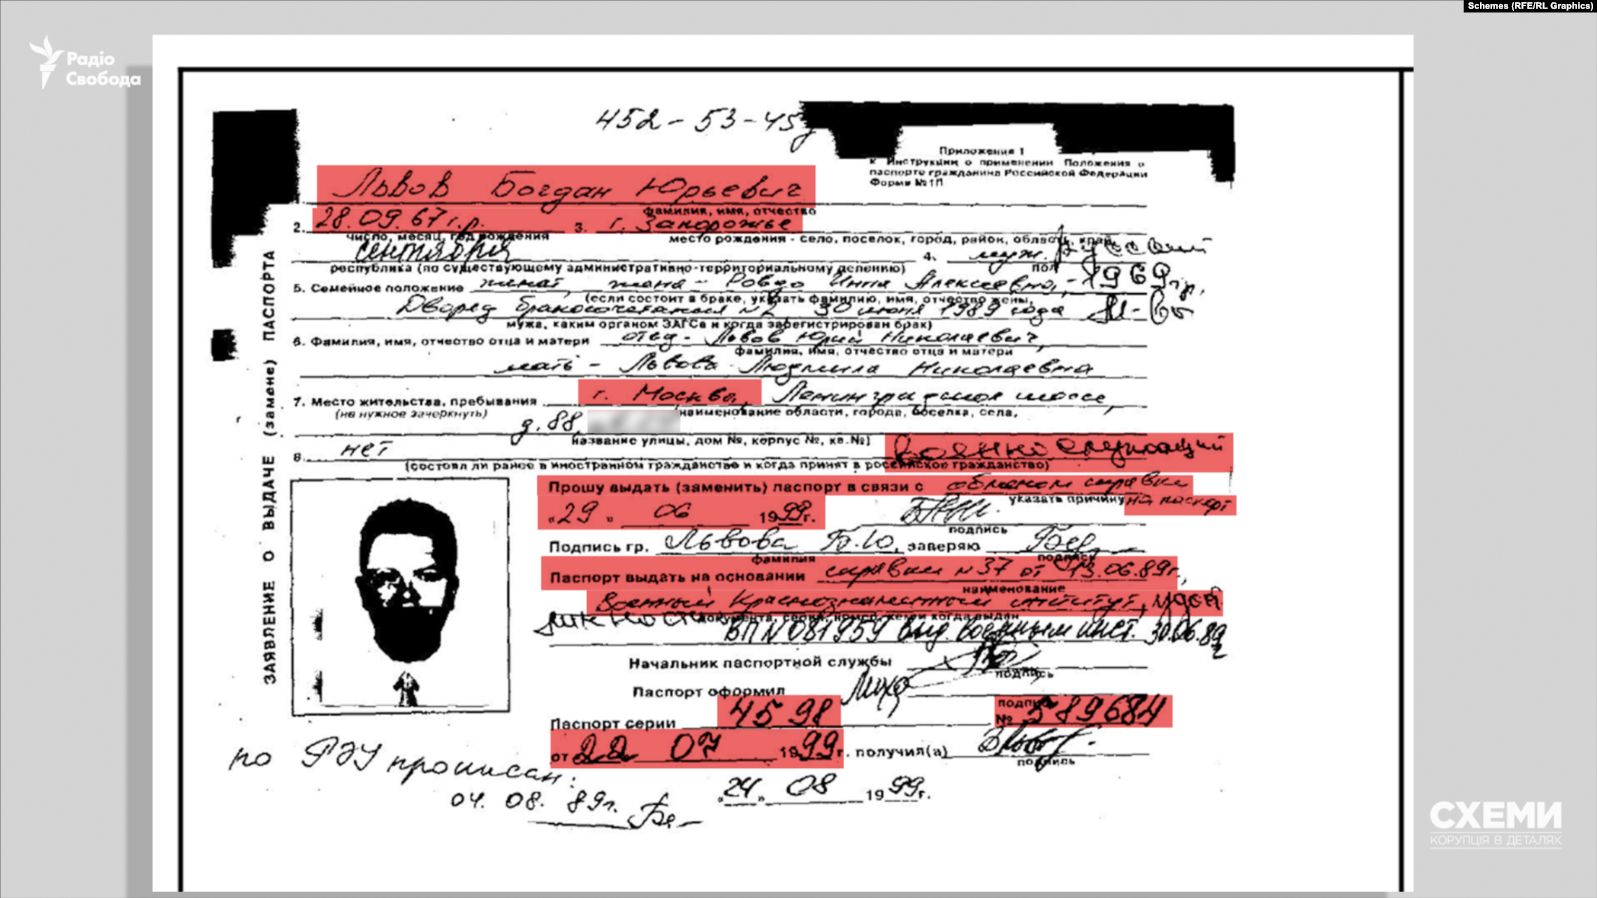 Schemes (RFE/RL Graphics)
Радіо
Свобода
452-53-45
Приложение 1
к Инструкции о применении Положения о
паспорте гражданина Российской Федерации
Форма №1П
ЗАЯВЛЕНИЕ О ВЫДАЧЕ (замене) ПАСПОРТА
Львов Богдан Юрьевич
фамилия, имя, отчество
2. 28.09.67 г.р. 3. г. Запорожье
число, месяц, год рождения место рождения - село, поселок, город, район, область, край,
сентября 4. муж. русский
республика (по существующему административно-территориальному делению) пол
5. Семейное положение женат, жена - Инна Алексеевна, - 1969 г.р.,
(если состоит в браке, указать фамилию, имя, отчество жены,
Дворец бракосочетания №2 30 июня 1989 года
мужа, каким органом ЗАГСа и когда зарегистрирован брак)
6. Фамилия, имя, отчество отца и матери отец - Львов Юрий Николаевич,
фамилия, имя, отчество отца и матери
мать - Львова Людмила Николаевна
7. Место жительства, пребывания г. Москва, Ленинградское шоссе,
(не нужное зачеркнуть) наименование области, города, поселка, села,
д. 88,
название улицы, дом №, корпус №, кв.№)
8. нет военнослужащий
(состоял ли ранее в иностранном гражданстве и когда принят в российское гражданство)
Прошу выдать (заменить) паспорт в связи с обменом справки
указать причину на паспорт
"29" 06 1999г.
подпись
Подпись гр. Львова Б.Ю. заверяю
фамилия подпись
Паспорт выдать на основании справки №37 от 13.06.89г.,
наименование
Военный Краснознаменный институт, удост
документа, серия, номер, кем и когда выдан
личности ВП №081959 выд. Военным инст. 30.06.89
Начальник паспортной службы
подпись
Паспорт оформил
подпись
Паспорт серии 4598 № 589684
от 22 07 1999г. получил(а)
подпись
по РЭУ прописан:
04. 08. 89г.
"24" 08 1999г.
СХЕМИ
КОРУПЦІЯ В ДЕТАЛЯХ